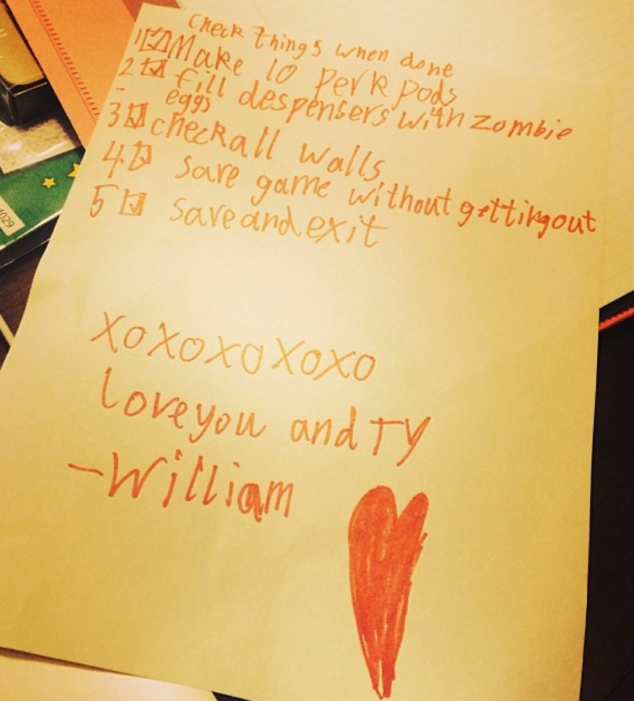 Check things when done
1 ☑ Make 10 perk pods
2 ☑ fill despensers with zombie
- eggs
3 ☑ check all walls
4 ☑ save game without getting out
5 ☑ save and exit
XoXoXoXoXo
Love you and TY
-William
1029